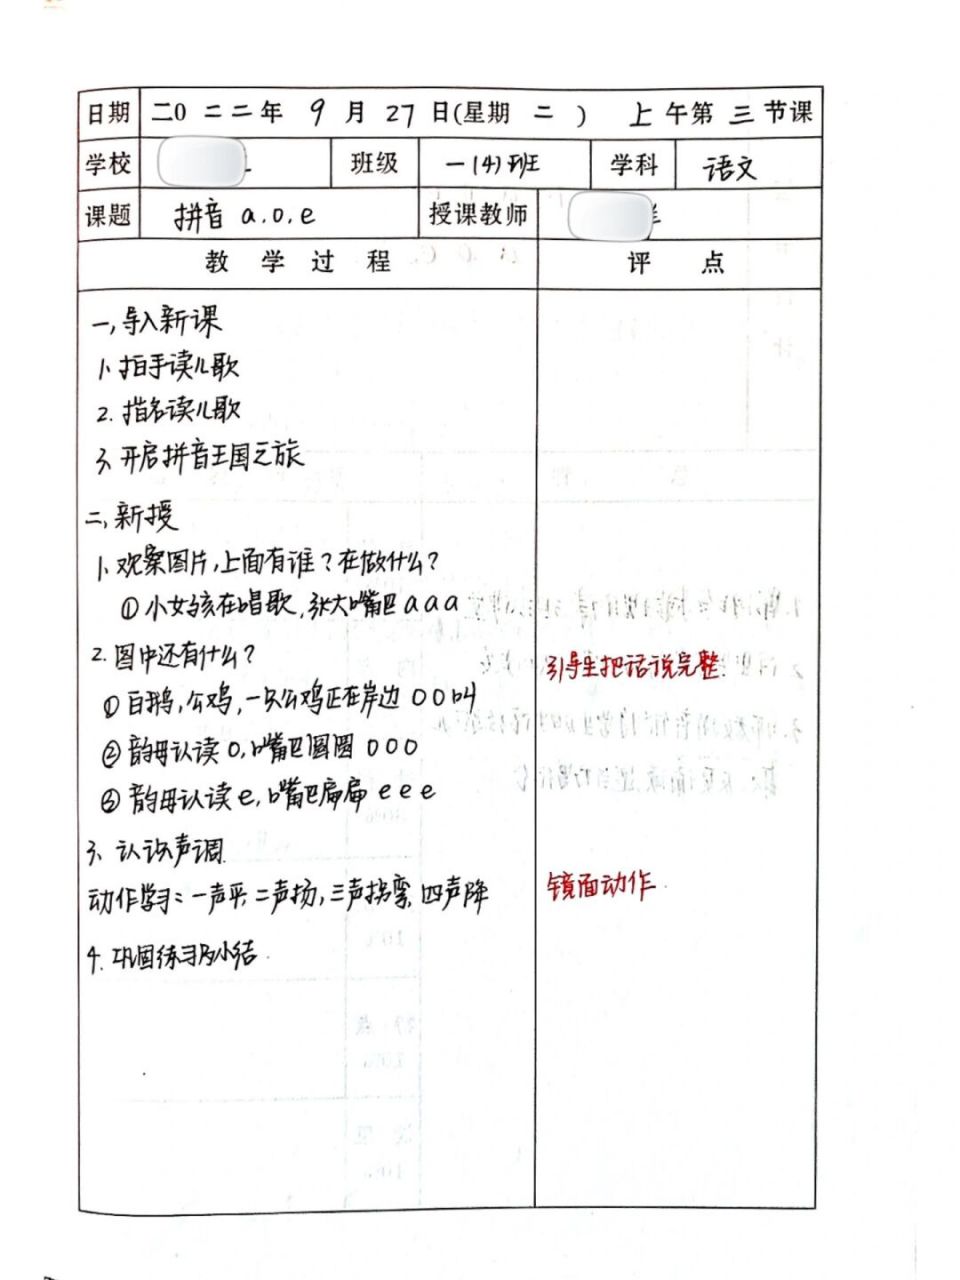 日期 二0二二年 9月27日(星期二) 上午第三节课
学校 班级 一(4)班 学科 语文
课题 拼音 a.o.e 授课教师
教学过程 评点
一,导入新课
1. 拍手读儿歌
2. 指名读儿歌
3. 开启拼音王国之旅
二,新授
1. 观察图片,上面有谁?在做什么?
①小女孩在唱歌,张大嘴巴 a a a
2. 图中还有什么?
引导生把话说完整.
①白鹅,公鸡,一只公鸡正在岸边 o o 叫
②韵母认读 o,嘴巴圆圆 o o o
③韵母认读 e,嘴巴扁扁 e e e
3. 认识声调.
动作学习:一声平,二声扬,三声拐弯,四声降
镜面动作.
4. 巩固练习及小结.